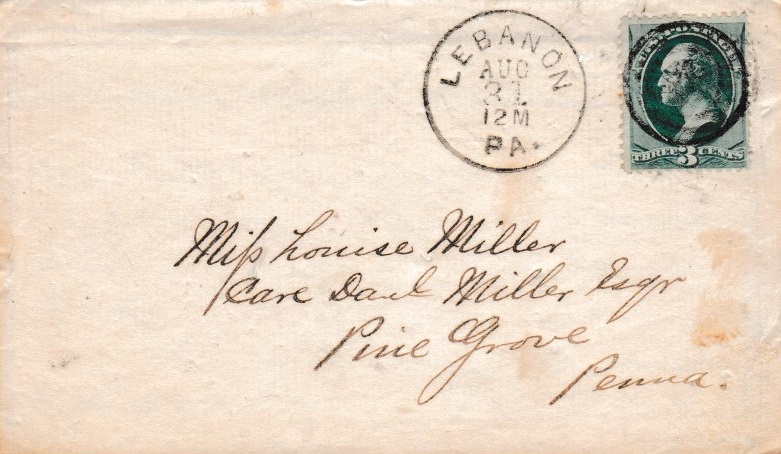 LEBANON
AUG
31
12 M
PA.
U.S. POSTAGE
THREE 3 CENTS
Miss Louise Miller
Care Danl Miller Esqr
Pine Grove
Penna.